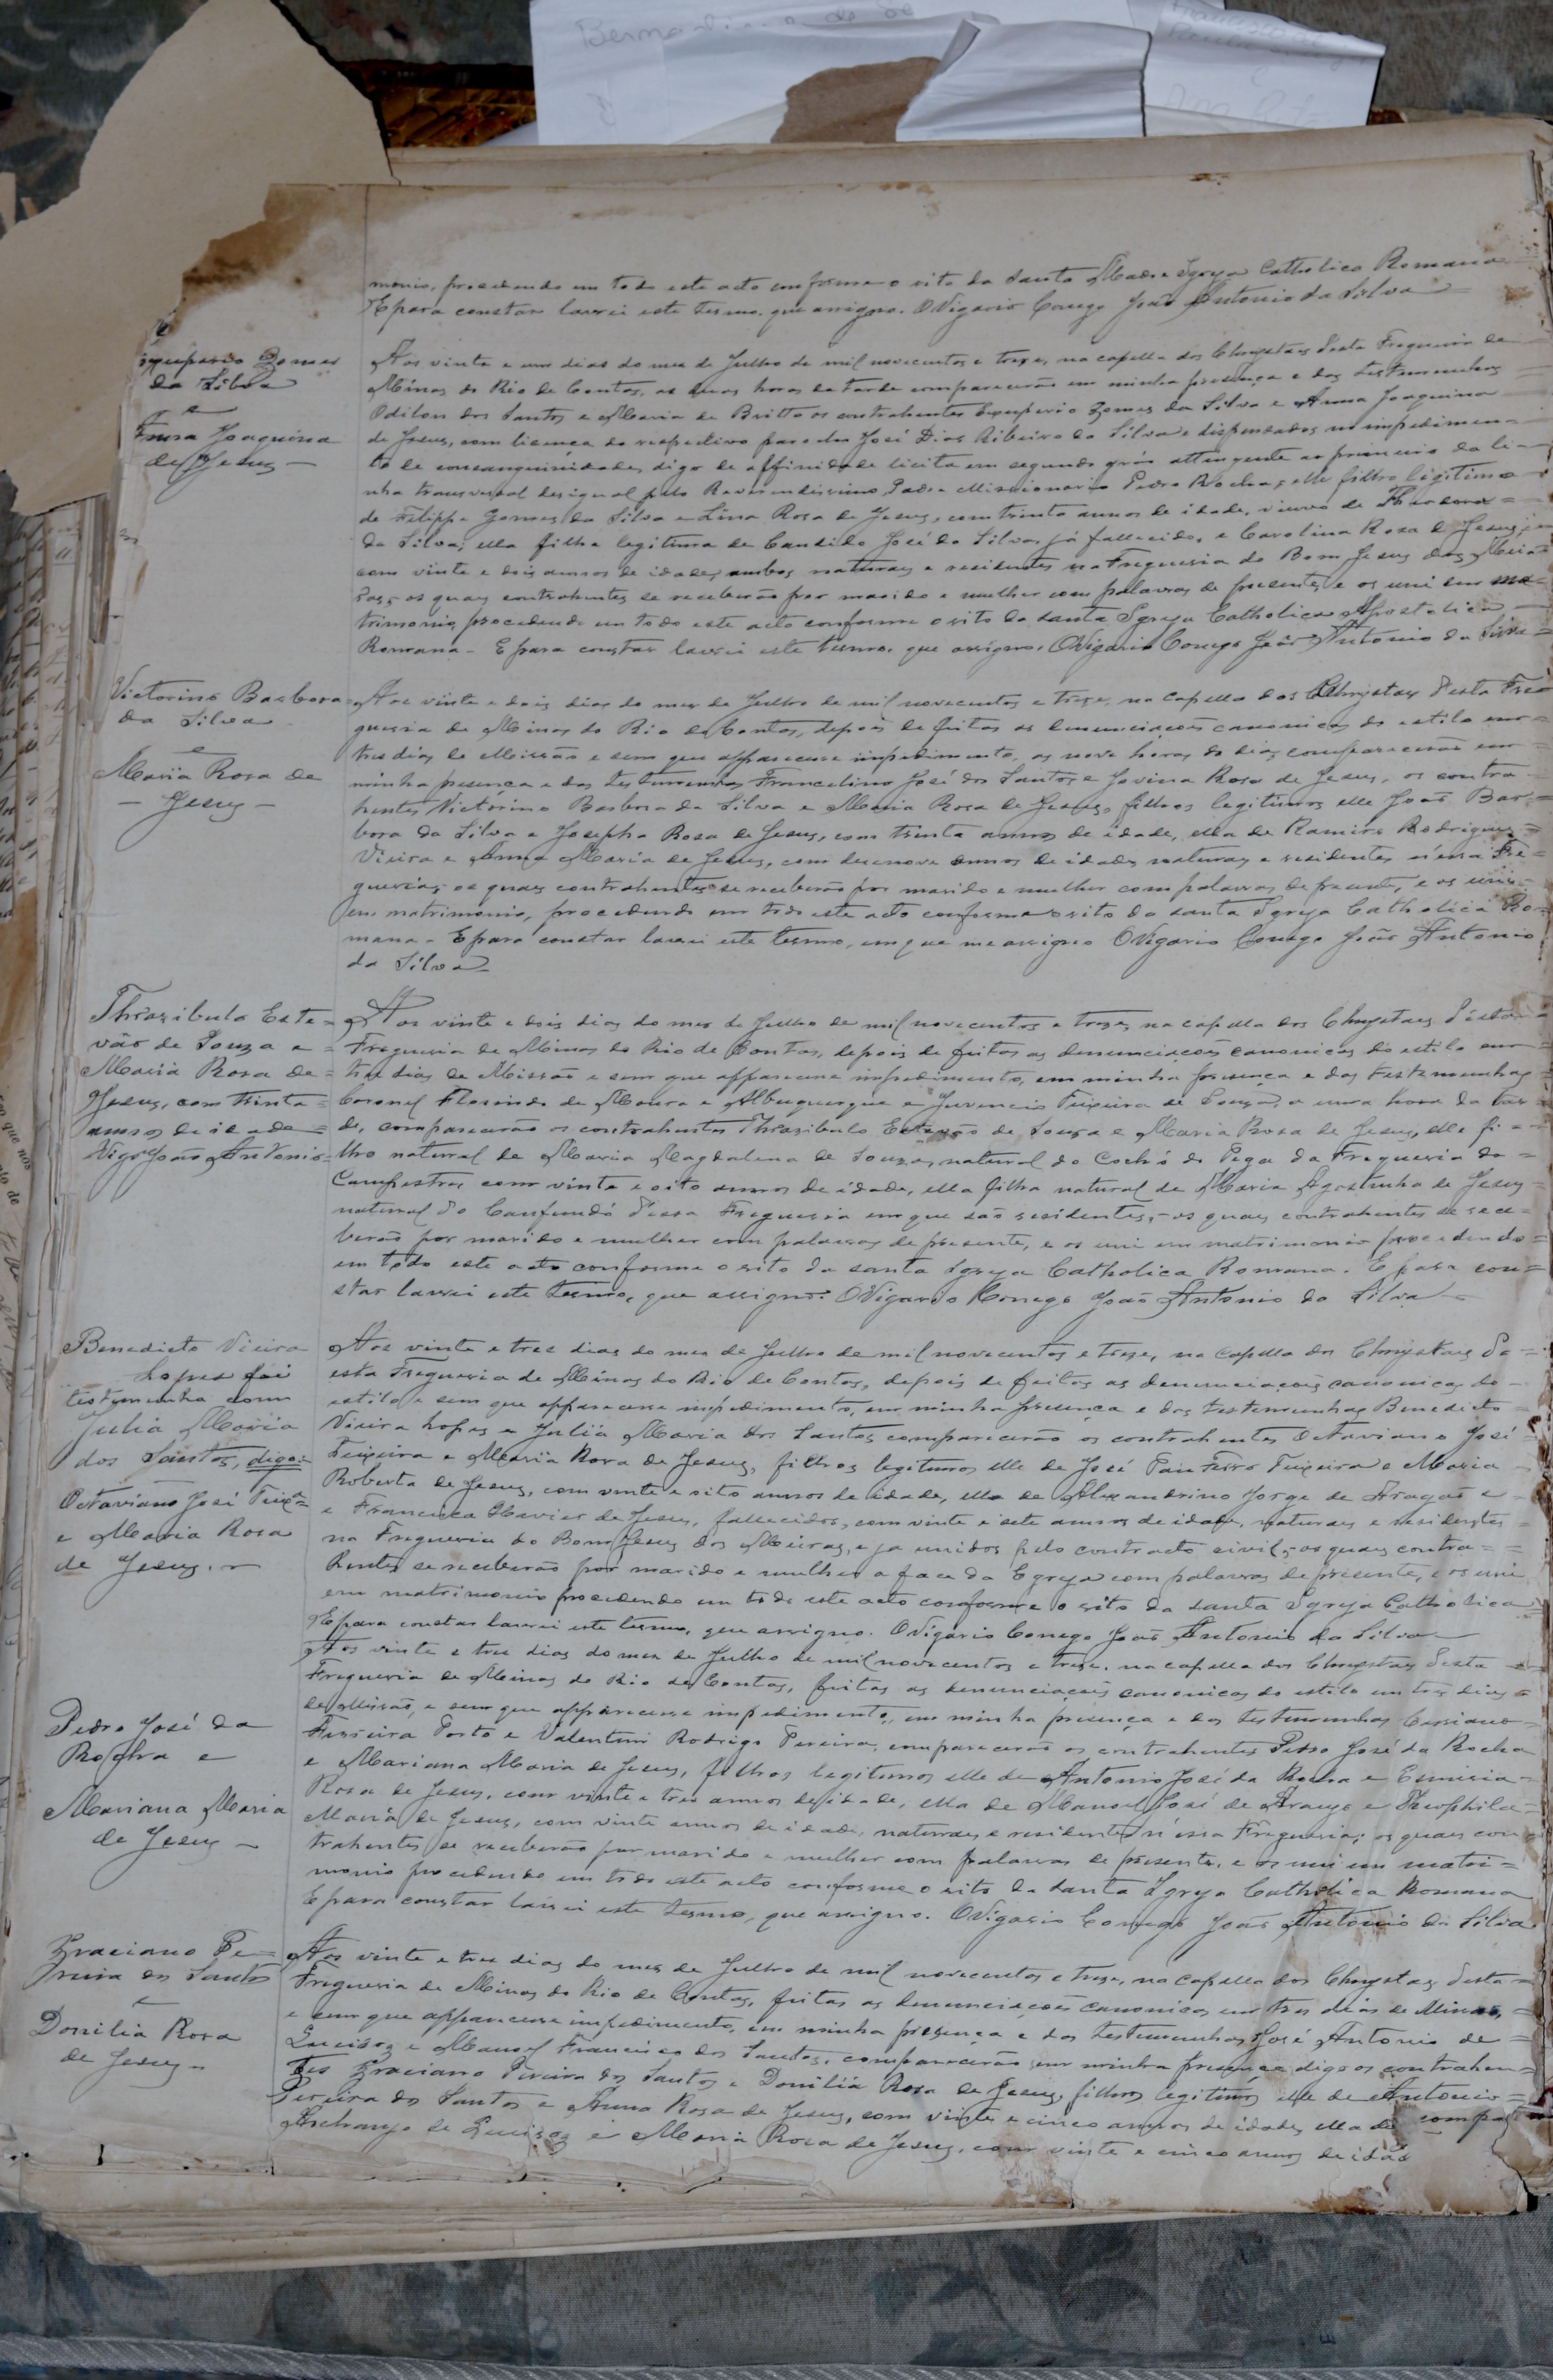 Bernardina de Se
monio, procedendo em todo este acto conforme o rito da Santa Madre Igreja Catholica Romana
E para constar lavrei este termo, que assigno. O Vigario Conego João Antonio da Silva
Exuperio Gomes
da Silva
e
Anna Joaquina
de Jesus
Aos vinte e um dias do mez de Julho de mil novecentos e treze, na capella dos Chrystaes desta Freguezia de
Minas do Rio de Contas, as duas horas da tarde comparecerão em minha presença e das testemunhas
Odilon dos Santos e Maria de Britto os contrahentes Exuperio Gomes da Silva e Anna Joaquina
de Jesus, com licença do respectivo parocho José Dias Ribeiro da Silva e dispensados no impedimen-
to de consanguinidade, digo de affinidade licita em segundo gráo attingente ao primeiro da li-
nha transversal desigual pelo Reverendissimo Padre Missionario Pedro Rocha; elle filho legitimo
de Filippe Gomes da Silva e Lina Rosa de Jesus, com trinta annos de idade, viuvo de
da Silva; ella filha legitima de Candido José da Silva, já fallecido, e Carolina Rosa de Jesus,
com vinte e dois annos de idade, ambos naturaes e residentes na Freguezia do Bom Jesus dos Mei-
ras, os quaes contrahentes se receberão por marido e mulher com palavras de presente, e os uni em ma-
trimonio, procedendo em todo este acto conforme o rito da Santa Igreja Catholica Apostolica
Romana. E para constar lavrei este termo, que assigno. O Vigario Conego João Antonio da Silva
Victorino Barbosa
da Silva
e
Maria Rosa de
Jesus
Aos vinte e dois dias do mez de Julho de mil novecentos e treze, na capella dos Chrystaes desta Fre-
guezia de Minas do Rio de Contas, depois de feitas as denunciações canonicas do estilo em
tres dias de Missão e sem que apparecesse impedimento, as nove horas do dia, comparecerão em
minha presença e das testemunhas Francelino José dos Santos e Jovina Rosa de Jesus, os contra-
hentes Victorino Barbosa da Silva e Maria Rosa de Jesus, filhos legitimos elle João Bar-
bosa da Silva e Josepha Rosa de Jesus, com trinta annos de idade, ella de Ramiro Rodrigues
Vieira e Anna Maria de Jesus, com desenove annos de idade, naturaes e residentes n'essa Fre-
guezia; os quaes contrahentes se receberão por marido e mulher com palavras de presente, e os uni
em matrimonio, procedendo em todo este acto conforme o rito da Santa Igreja Catholica Ro-
mana. E para constar lavrei este termo, em que me assigno O Vigario Conego João Antonio
da Silva
Thrasibulo Este-
vão de Souza e
Maria Rosa de
Jesus, com trinta
annos de idade
Vigr João Antonio
Aos vinte e dois dias do mez de Julho de mil novecentos e treze, na capella dos Chrystaes d'esta
Freguezia de Minas do Rio de Contas, depois de feitas as denunciacões canonicas do estilo em
tres dias de Missão e sem que apparecesse impedimento, em minha presença e das testemunhas
Coronel Florindo de Moura e Albuquerque e Juvencio Teixeira de Souza, a uma hora da tar-
de, comparecerão os contrahentes Thrasibulo Estevão de Souza e Maria Rosa de Jesus, elle fi-
lho natural de Maria Magdalena de Souza, natural do Cochó do Pega da Freguezia do
Campestre, com vinte e oito annos de idade, ella filha natural de Maria Agostinha de Jesus
natural do d'essa Freguezia em que são residentes; os quaes contrahentes se rece-
berão por marido e mulher com palavras de presente, e os uni em matrimonio procedendo
em todo este acto conforme o rito da santa Igreja Catholica Romana. E para con-
star lavrei este termo, que assigno. O Vigario Conego João Antonio da Silva
Benedicto Vieira
Lopes foi
testemunha com
Julia Maria
dos Santos, digo:
Octaviano José Teixª
e Maria Rosa
de Jesus.
Aos vinte e tres dias do mez de Julho de mil novecentos e treze, na capella dos Chrystaes da
esta Freguezia de Minas do Rio de Contas, depois de feitas as denunciações canonicas do
estilo e sem que apparecesse impedimento, em minha presença e das testemunhas Benedicto
Vieira Lopes e Julia Maria dos Santos comparecerão os contrahentes Octaviano José
Teixeira e Maria Rosa de Jesus, filhos legitimos elle de José Pau Ferro Teixeira e Maria
Roberta de Jesus, com vinte e oito annos de idade, ella de Alexandrino Jorge de Aragão e
e Francisca Xavier de Jesus, fallecidos, com vinte e sete annos de idade, naturaes e residentes
na Freguezia do Bom Jesus dos Meiras, e ja unidos pelo contracto civil; os quaes contra-
hentes se receberão por marido e mulher a face da Egreja com palavras de presente, e os uni
em matrimonio procedendo em todo este acto conforme o rito da santa Igreja Catholica
E para constar lavrei este termo, que assigno. O Vigario Conego João Antonio da Silva
Pedro José da
Rocha e
Mariana Maria
de Jesus
Aos vinte e tres dias do mez de Julho de mil novecentos e treze, na capella dos Chrystaes desta
Freguezia de Minas do Rio de Contas, feitas as denunciações canonicas do estilo em tres dias
de Missão, e sem que apparecesse impedimento, em minha presença e das testemunhas Cassiano
Ferreira Porto e Valentim Rodrigo Pereira, comparecerão os contrahentes Pedro José da Rocha
e Mariana Maria de Jesus, filhos legitimos elle de Antonio José da Rocha e
Rosa de Jesus, com vinte e tres annos de idade, ella de Manoel José de Araujo e Theophila
Maria de Jesus, com vinte annos de idade, naturaes e residentes n'essa Freguezia; os quaes con-
trahentes se receberão por marido e mulher com palavras de presente, e os uni em matri-
monio procedendo em todo este acto conforme o rito da Santa Igreja Catholica Romana
E para constar lavrei este termo, que assigno. O Vigario Conego João Antonio da Silva
Graciano Pe-
reira dos Santos
e
Donilia Rosa
de Jesus
Aos vinte e tres dias do mez de Julho de mil novecentos e treze, na capella dos Chrystaes desta
Freguezia de Minas do Rio de Contas, feitas as denunciações canonicas em tres dias de Missão,
e sem que apparecesse impedimento, em minha presença e das testemunhas José Antonio de
Queiroz e Manoel Francisco dos Santos, comparecerão em minha presença digo os contrahen-
tes Graciano Pereira dos Santos e Donilia Rosa de Jesus, filhos legitimos elle de Antonio
Pereira dos Santos e Anna Rosa de Jesus, com vinte e cinco annos de idade, ella de
Archanjo de Queiroz e Maria Rosa de Jesus, com vinte e cinco annos de idade